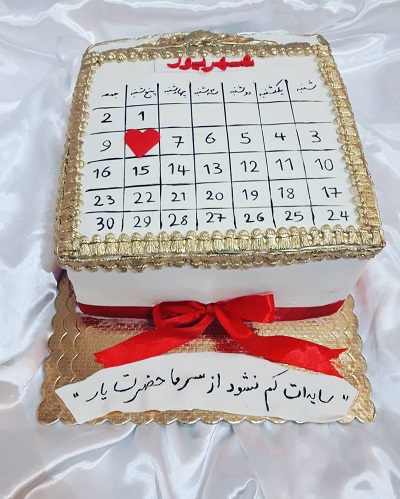 شهریور
شنبه یکشنبه دوشنبه سه شنبه چهارشنبه پنج شنبه جمعه
1 2
3 4 5 6 7 9
10 11 12 13 14 15 16
17 18 19 20 21 22 23
24 25 26 27 28 29 30
"سایه ات کم نشود از سر ما حضرت یار"